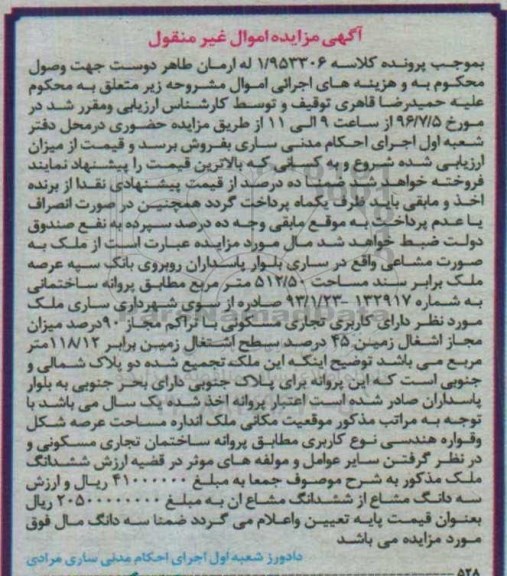 آگهی مزایده اموال غیر منقول
بموجب پرونده کلاسه ۱/۹۵۳۳۰۶ له ارمان طاهر دوست جهت وصول
محکوم به و هزینه های اجرائی اموال مشروحه زیر متعلق به محکوم
علیه حمیدرضا قاهری توقیف و توسط کارشناس ارزیابی ومقرر شد در
مورخ ۹۶/۷/۵ از ساعت ۹ الی ۱۱ از طریق مزایده حضوری درمحل دفتر
شعبه اول اجرای احکام مدنی ساری بفروش برسد و قیمت از میزان
ارزیابی شده شروع و به کسانی که بالاترین قیمت را پیشنهاد نمایند
فروخته خواهد شد ده درصد از قیمت پیشنهادی نقدا از برنده
اخذ و مابقی باید ظرف یکماه پرداخت گردد همچنین در صورت انصراف
یا عدم پرداخت به موقع مابقی وجه ده درصد سپرده به نفع صندوق
دولت ضبط خواهد شد مال مورد مزایده عبارت است از ملک به
صورت مشاعی واقع در ساری بلوار پاسداران روبروی بانک سپه عرصه
ملک برابر سند مساحت ۵۱۲/۵۰ متر مربع مطابق پروانه ساختمانی
به شماره ۱۳۲۹۱۷ -۹۳/۱/۲۳ صادره از سوی شهرداری ساری ملک
مورد نظر دارای کاربری تجاری مسکونی با تراکم مجاز ۹۰درصد میزان
مجاز اشغال زمین ۴۵ درصد سطح اشتغال زمین برابر ۱۱۸/۱۲متر
مربع می باشد توضیح اینکه این ملک تجمیع شده دو پلاک شمالی و
جنوبی است که این پروانه برای پلاک جنوبی دارای بحر جنوبی به بلوار
پاسداران صادر شده است اعتبار پروانه اخذ شده یک سال می باشد با
توجه به مراتب مذکور موقعیت مکانی ملک اندازه مساحت عرصه شکل
وقواره هندسی نوع کاربری مطابق پروانه ساختمان تجاری مسکونی و
در نظر گرفتن سایر عوامل و مولفه های موثر در قضیه ارزش ششدانگ
ملک مذکور به شرح موصوف جمعا به مبلغ ۴۱۰۰۰۰۰۰ ریال و ارزش
سه دانگ مشاع از ششدانگ مشاع ان به مبلغ ۲۰۵۰۰۰۰۰۰۰۰ ریال
بعنوان قیمت پایه تعیین واعلام می گردد ضمنا سه دانگ مال فوق
مورد مزایده می باشد
دادورز شعبه اول اجرای احکام مدنی ساری مرادی
۵۲۸